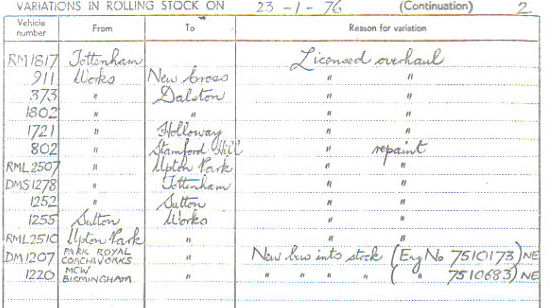 VARIATIONS IN ROLLING STOCK ON 23-1-76 (Continuation) 2
Vehicle number From To Reason for variation
RM1817 Tottenham Licensed overhaul
911 Works New Cross " "
373 " Dalston " "
1802 " " " "
1721 " Holloway " "
802 " Stamford Hill " repaint
RML2507 " Upton Park " "
DMS1278 " Tottenham " "
1252 " Sutton " "
1255 Sutton Works " "
RML2510 Upton Park " " "
DM1207 PARK ROYAL COACHWORKS " New bus into stock (Eng No 7510173) NE
1220 MCW BIRMINGHAM " " " " " ( " 7510683) NE